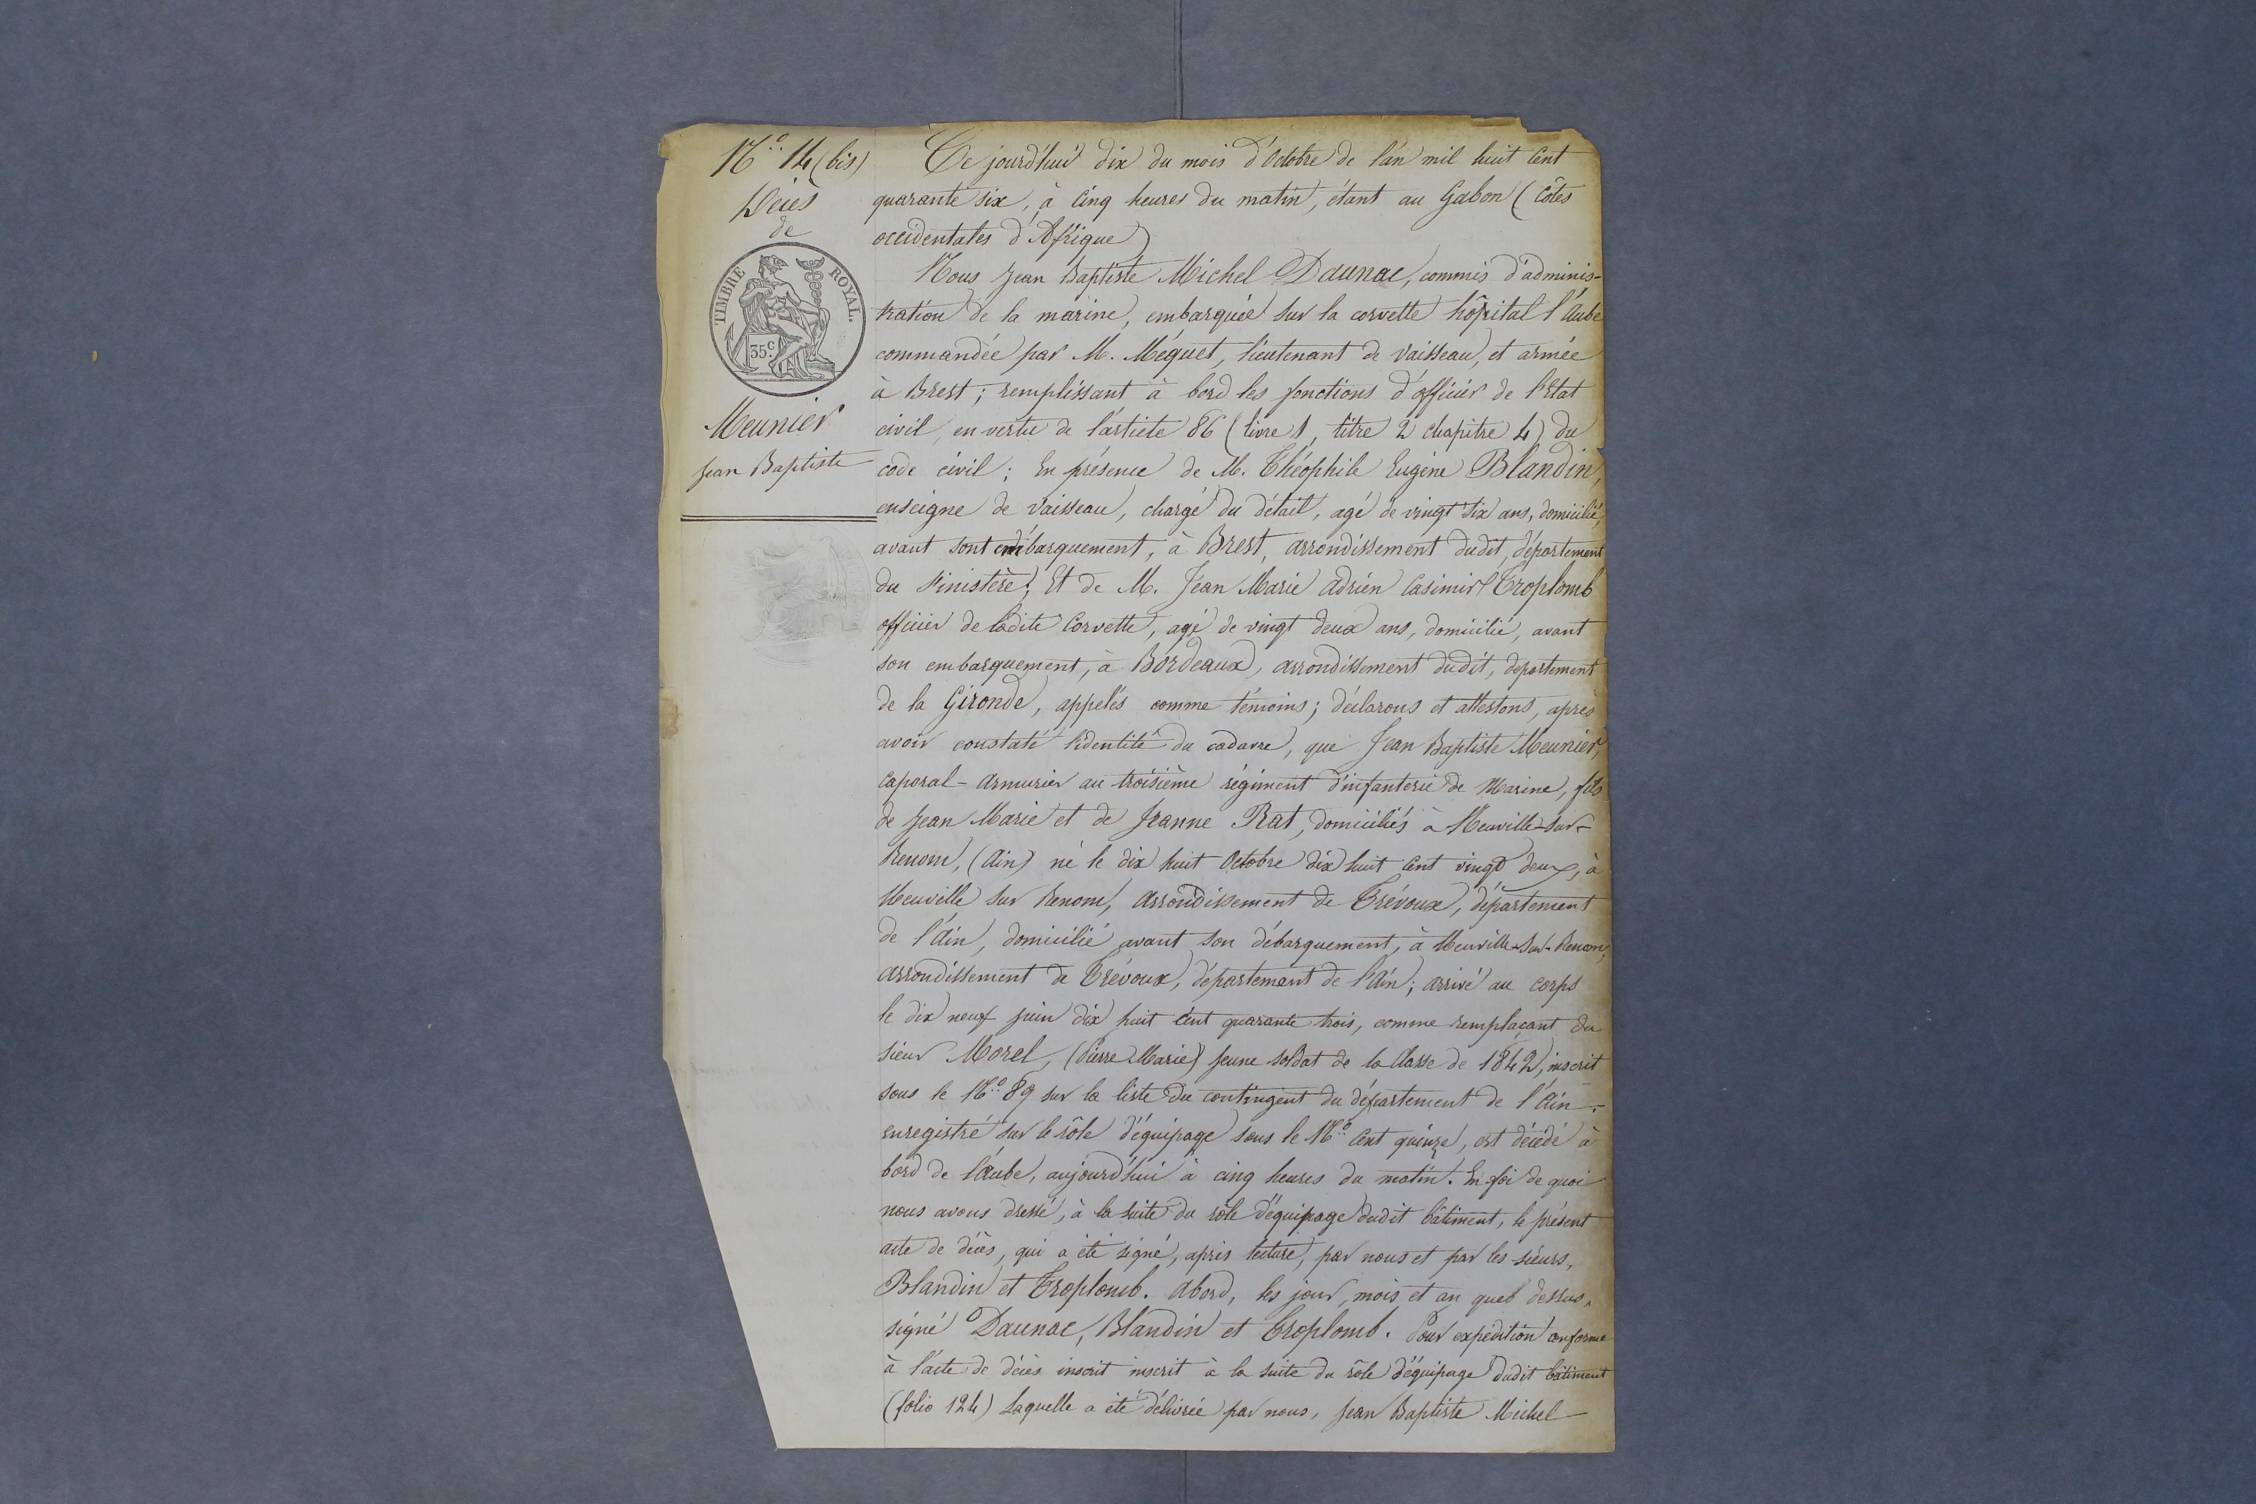 N.º 14 (bis)
Décès
de
TIMBRE ROYAL.
35 c.
Meunier
Jean Baptiste
Ce jourd'hui dix du mois d'Octobre de l'an mil huit Cent
quarante six, à Cinq heures du matin, étant au Gabon (Côtes
occidentales d'Afrique)
Nous Jean Baptiste Michel Daunac, commis d'adminis-
tration de la marine, embarquée sur la corvette hôpital l'Aube
commandée par M. Méquet, lieutenant de vaisseau, et armée
à Brest; remplissant à bord les fonctions d'officier de l'Etat
civil, en vertu de l'article 86 (livre 1, titre 2 chapitre 4) du
code civil; En présence de M. Théophile Eugène Blandin,
enseigne de vaisseau, chargé du détail, agé de vingt six ans, domicilié,
avant sont embarquement, à Brest, arrondissement dudit, département
du Finistère; Et de M. Jean Marie Adrien Casimir Troplomb
officier de ladite Corvette, agé de vingt deux ans, domicilié, avant
son embarquement, à Bordeaux, arrondissement dudit, departement
de la Gironde, appelés comme témoins; déclarons et attestons, après
avoir constaté l'identité du cadavre, que Jean Baptiste Meunier,
Caporal-armurier au troisième régiment d'infanterie de Marine, fils
de Jean Marie et de Jeanne Rat, domiciliés à Neuville-sur-
Renom, (Ain) né le dix huit Octobre dix huit Cent vingt deux, à
Neuville sur Renom, arrondissement de Trévoux, département
de l'Ain, domicilié avant son débarquement, à Neuville-sur-Renom,
arrondissement de Trévoux, département de l'Ain; arrivé au corps
le dix neuf juin dix huit Cent quarante trois, comme remplaçant du
sieur Morel, (Pierre Marie) jeune soldat de la Classe de 1842, inscrit
sous le N.º 89 sur la liste du contingent du département de l'Ain.
enregistré sur le rôle d'équipage sous le N.º Cent quinze, est décédé à
bord de l'Aube, aujourd'hui à cinq heures du matin. En foi de quoi
nous avons dressé, à la suite du rôle d'équipage dudit bâtiment, le présent
acte de décès, qui a été signé, après lecture, par nous et par les sieurs,
Blandin et Troplomb. Abord, les jour, mois et an que dessus.
signé Daunac, Blandin et Troplomb. Pour expédition conforme
à l'acte de décès inscrit inscrit à la suite du rôle d'équipage dudit bâtiment
(folio 124) Laquelle a été délivrée par nous, Jean Baptiste Michel